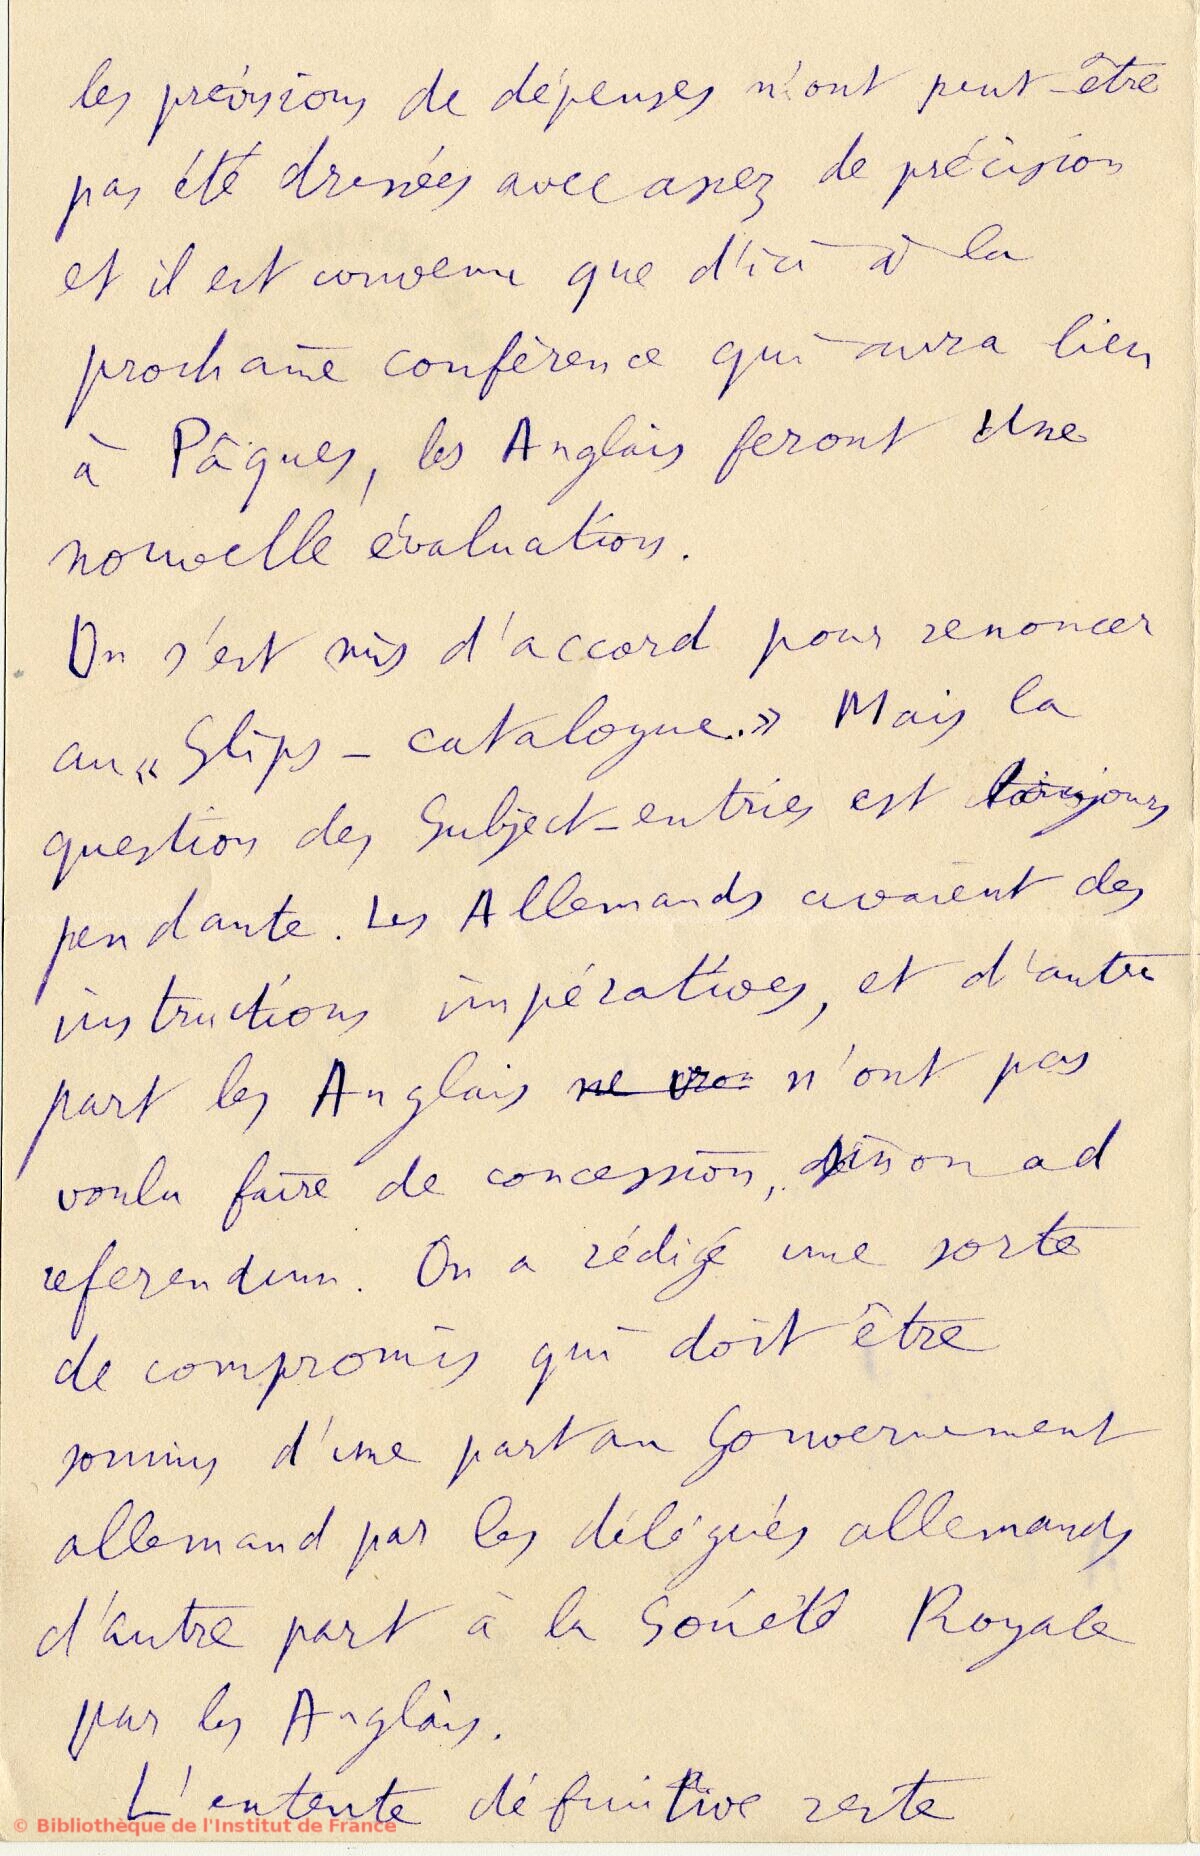 les prévisions de dépenses n'ont peut-être
pas été dressées avec assez de précision
et il est convenu que d'ici à la
prochaine conférence qui aura lieu
à Pâques, les Anglais feront une
nouvelle évaluation.
On s'est mis d'accord pour renoncer
au « Slips-catalogue. » Mais la
question des Subject-entries est toujours
pendante. Les Allemands avaient des
instructions impératives, et d'autre
part les Anglais ne vron n'ont pas
voulu faire de concession, sinon ad
referendum. On a rédigé une sorte
de compromis qui doit être
soumis d'une part au Gouvernement
allemand par les délégués allemands
d'autre part à la Société Royale
par les Anglais.
L'entente définitive reste
© Bibliothèque de l'Institut de France